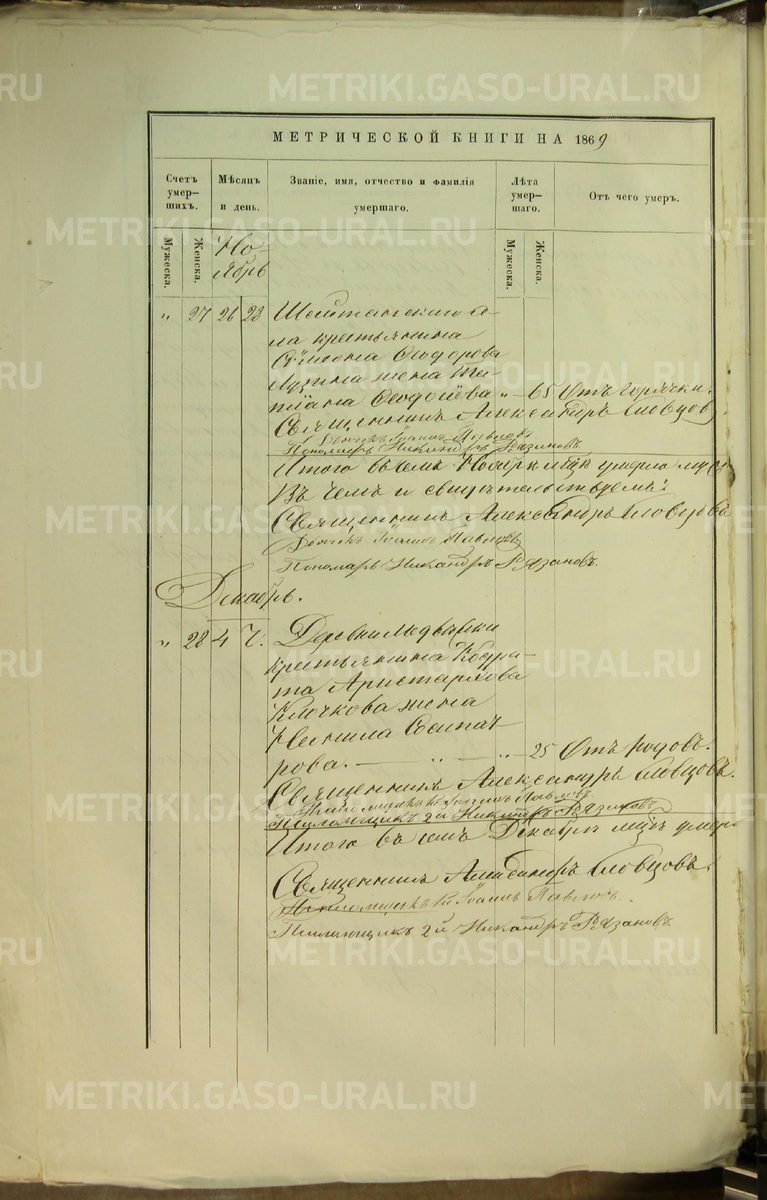 МЕТРИЧЕСКОЙ КНИГИ НА 1869
Счетъ умер-шихъ.
Мѣсяцъ и день.
Званіе, имя, отчество и фамилія умершаго.
Лѣта умер-шаго.
Отъ чего умеръ.
Мужеска.
Женска.
Мужеска.
Женска.
Но-
ябрь
" 27 26 28 Шайтанскаго се-
ла крестьянина
Симеона Ѳеодорова
жена
Ѳеодосіева " 65 Отъ горячки.
Священникъ Александръ Словцовъ
Дьячекъ Іоаннъ Павловъ
Пономарь Никандръ Рязановъ
Итого въ семъ Ноябрѣ м-цѣ умерло муж
Въ чемъ и свидѣтельствуемъ:
Священникъ Александръ Словцовъ
Дьячекъ Іоаннъ Павловъ
Пономарь Никандръ Рязановъ.
Декабрь.
" 28 4 7. Деревни Медвѣдки
крестьянина Кодра-
та Аристархова
Клочкова жена
Неонила
рова. — " — " — 25 Отъ родовъ.
Священникъ Александръ Словцовъ.
Псаломщикъ Іоаннъ Павловъ
Псаломщикъ 2й Никандръ Рязановъ
Итого въ семъ Декабрѣ м-цѣ умер
Священникъ Александръ Словцовъ.
Псаломщикъ Іоаннъ Павловъ.
Псаломщикъ 2й Никандръ Рязановъ
METRIKI.GASO-URAL.RU